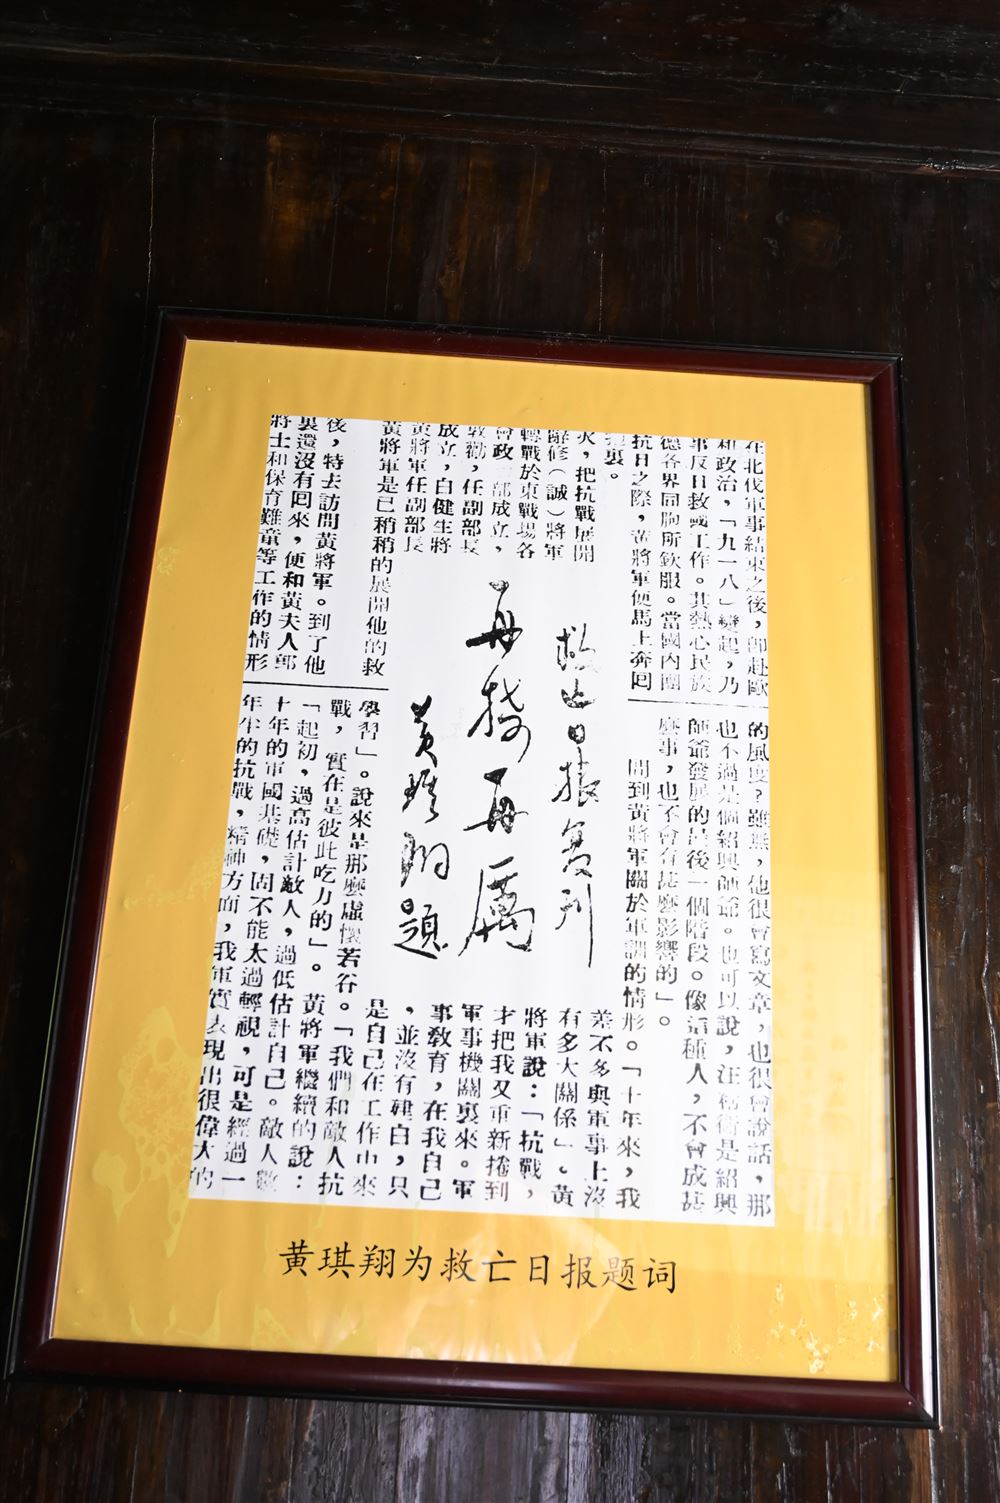 在北伐軍事結束之後，卽赴歐
和政治，「九一八」變起，乃
事反日救國工作。其熱心民族
德各界同胞所欽服。當國內團
抗日之際，黃將軍便馬上奔回
裏。
火，把抗戰展開
辭修（誠）將軍
轉戰於東戰場各
會政 部成立，
敦勸，任副部長
成立，白健生將
黃將軍任副部長
黃將軍是已稍稍的展開他的救
後，特去訪問黃將軍。到了他
裏還沒有回來，便和黃夫人郭
將士和保育難童等工作的情形
救亡日報復刊
再接再厲
黃琪翔題
的風度？雖然，他很會寫文章，也很會說話，那
也不過是個紹興師爺。也可以說，汪 術是紹興
師爺發展的最後一個階段。像這種人，不會成甚
麼事，也不會有甚麼影響的」。
問到黃將軍關於軍訓的情形。「十年來，我
差不多與軍事上沒
有多大關係」。黃
將軍說：「抗戰，
才把我又重新捲到
軍事機關裏來。軍
事敎育，在我自己
，並沒有建白，只
是自己在工作中來
學習」。說來是那麼虛懷若谷。「我們和敵人抗
戰，實在是彼此吃力的」。黃將軍繼續的說：
「起初，過高估計敵人，過低估計自己。敵人
十年的軍國基礎，固不能太過輕視，可是經過一
年半的抗戰，精神方面，我軍實表現出很偉大的
黄琪翔为救亡日报题词